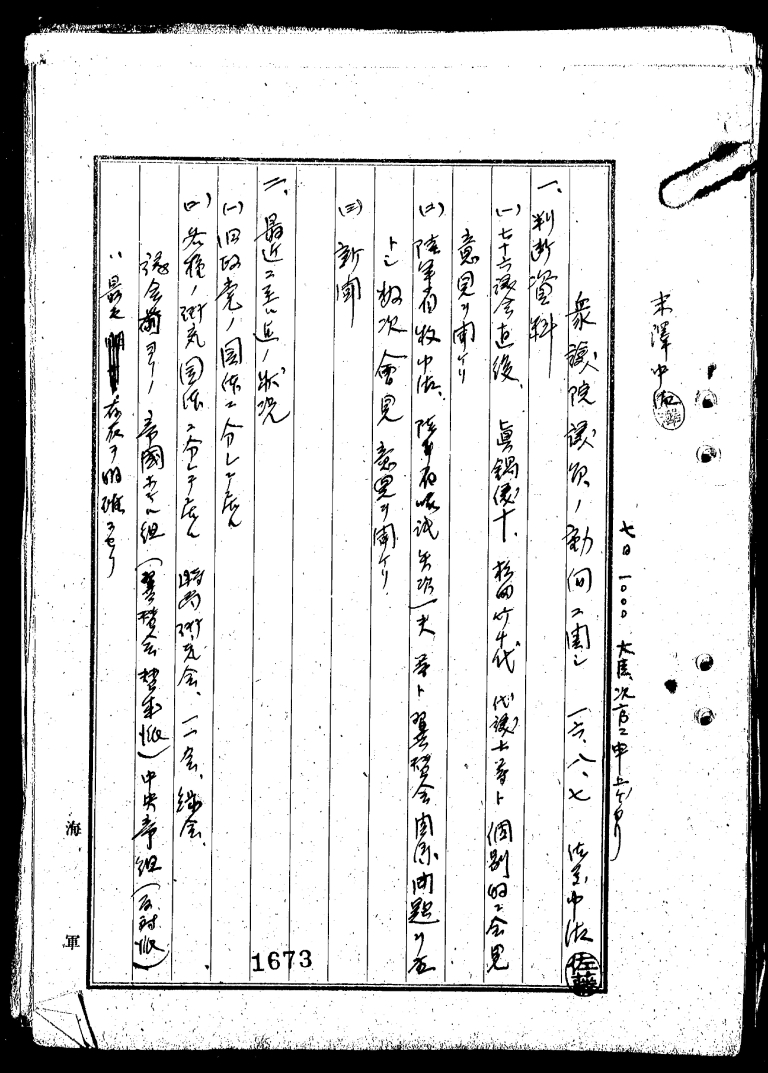 末澤中佐
七日一〇〇〇 大臣次官ニ申上ゲタリ
衆議院議員ノ動向ニ関シ 一六、八、七 佐藤中佐 佐藤
一、判断資料
(一)七十六議会直後、眞鍋儀十、松田竹千代 代議士等ト個別的ニ会見
意見ヲ聞ケリ
(二)陸軍省牧中佐、陸軍省嘱託矢次一夫等ト翼賛会関係問題ヲ
トシ数次会見意見ヲ聞ケリ
(三)新聞
二、最近ニ至ル迄ノ状況
(一)旧政党ノ団体ニ分レテ居ル
(二)各種ノ研究団体ニ分レテ居ル 時局研究会、一一会、緑会、
議会前ヨリノ帝國ホテル組(翼賛会賛成派)中央亭組(反対派)
ハ最モ存在ヲ明確ニセリ
海軍
1673